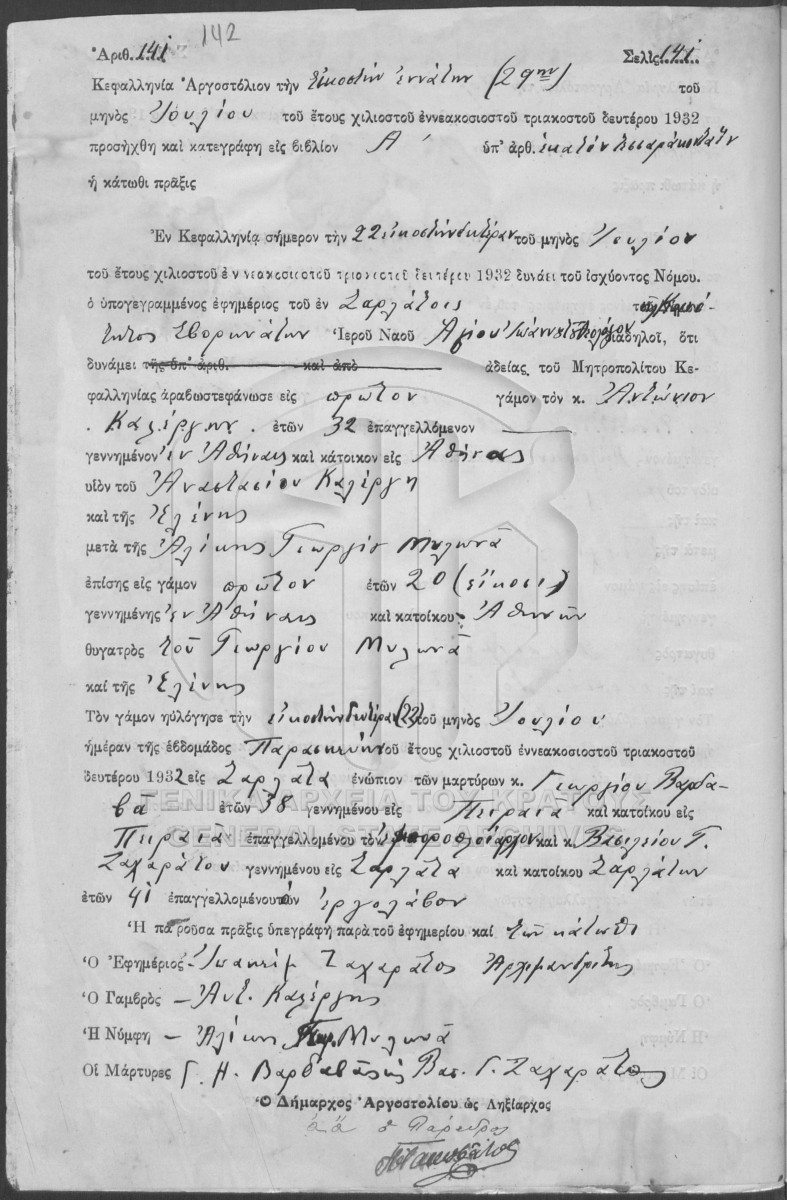 142
Ἀριθ. 141 Σελὶς 141
Κεφαλληνία Ἀργοστόλιον τὴν Εἰκοστὴν ἐννάτην (29ην) τοῦ
μηνὸς Ἰουλίου τοῦ ἔτους χιλιοστοῦ ἐννεακοσιοστοῦ τριακοστοῦ δευτέρου 1932
προσήχθη καὶ κατεγράφη εἰς βιβλίον Α' ὑπ' ἀριθ. ἑκατὸν
ἡ κάτωθι πρᾶξις
Ἐν Κεφαλληνίᾳ σήμερον τὴν 22 εἰκοστὴν δευτέραν τοῦ μηνὸς Ἰουλίου
τοῦ ἔτους χιλιοστοῦ ἐννεακοσιοστοῦ τριακοστοῦ δευτέρου 1932 δυνάει τοῦ ἰσχύοντος Νόμου.
ὁ ὑπογεγραμμένος ἐφημέριος τοῦ ἐν Σαρλάτοις
Σβορωνάτων Ἱεροῦ Ναοῦ Ἁγίου Ἰωάννου δηλοῖ, ὅτι
δυνάμει τῆς ὑπ' ἀριθ. καὶ ἀπὸ ἀδείας τοῦ Μητροπολίτου Κε-
φαλληνίας ἀραβωστεφάνωσε εἰς πρῶτον γάμον τὸν κ. Ἀντώνιον
Καλέργην. ἐτῶν 32 ἐπαγγελλόμενον
γεννημένον ἐν Ἀθήναις καὶ κάτοικον εἰς Ἀθήνας
υἱὸν τοῦ Ἀναστασίου Καλέργη
καὶ τῆς Ἑλένης
μετὰ τῆς Ἀλίκης Γεωργίου Μυλωνᾶ
ἐπίσης εἰς γάμον πρῶτον ἐτῶν 20 (εἴκοσι)
γεννημένης ἐν Ἀθήναις καὶ κατοίκου Ἀθηνῶν
θυγατρὸς τοῦ Γεωργίου Μυλωνᾶ
καὶ τῆς Ἑλένης
Τὸν γάμον ηὐλόγησε τὴν εἰκοστὴν δευτέραν (22) τοῦ μηνὸς Ἰουλίου
ἡμέραν τῆς ἑβδομάδος Παρασκευὴν τοῦ ἔτους χιλιοστοῦ ἐννεακοσιοστοῦ τριακοστοῦ
δευτέρου 1932 εἰς Σαρλάτα ἐνώπιον τῶν μαρτύρων κ. Γεωργίου Βαρδα-
βᾶ ἐτῶν 38 γεννημένου εἰς Πειραιᾶ καὶ κατοίκου εἰς
ΓΕΝΙΚΑ ΑΡΧΕΙΑ ΤΟΥ ΚΡΑΤΟΥΣ
GENERAL STATE ARCHIVES
Πειραιᾶ ἐπαγγελλομένου τὸν καὶ κ. Βασιλείου Γ.
Ζαχαράτου γεννημένου εἰς Σαρλάτα καὶ κατοίκου Σαρλάτων
ἐτῶν 41 ἐπαγγελλομένου τὸν ἐργολάβον
Ἡ παροῦσα πρᾶξις ὑπεγράφη παρὰ τοῦ ἐφημερίου καὶ τῶν κάτωθι
Ὁ Ἐφημέριος Ἰωακεὶμ Ζαχαρᾶτος Ἀρχιμανδρίτης
Ὁ Γαμβρὸς - Ἀντ. Καλέργης
Ἡ Νύμφη - Ἀλίκης Μυλωνᾶ
Οἱ Μάρτυρες Γ. Η. Βαρδαβᾶς Βασ. Γ. Ζαχαρᾶτος
Ὁ Δήμαρχος Ἀργοστολίου ὡς Ληξίαρχος
ὁ Πάρεδρος